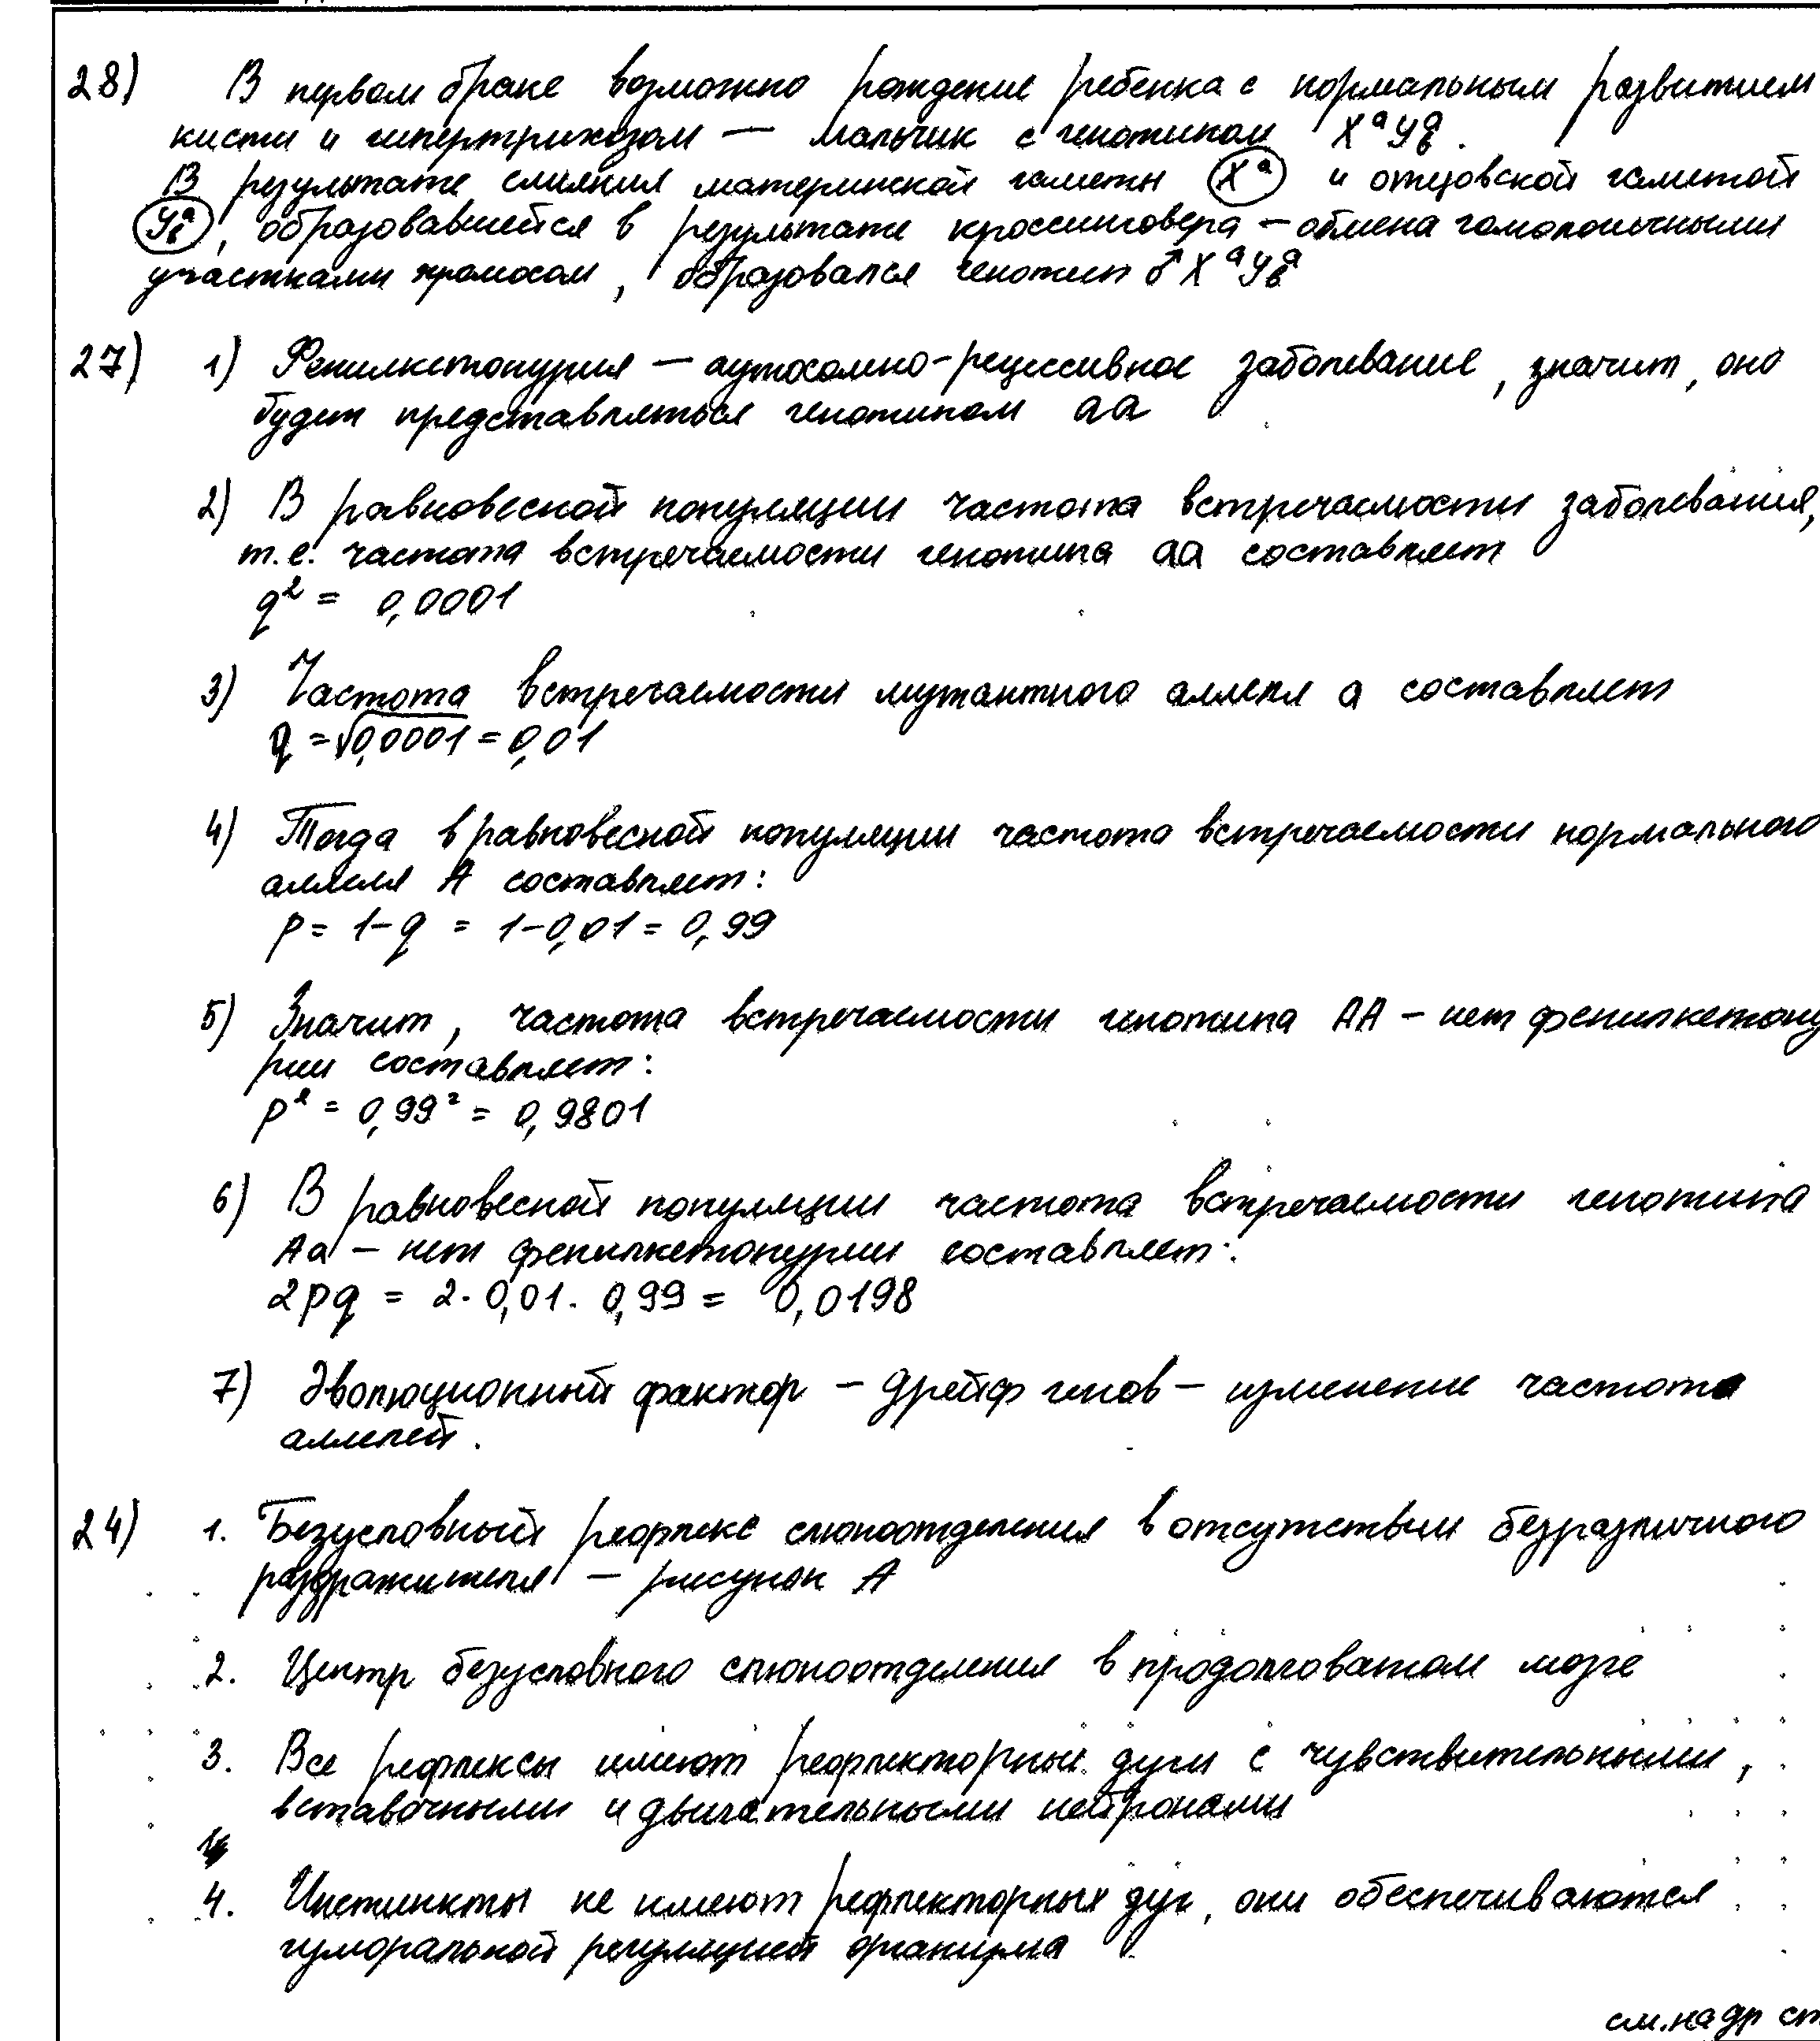 28) В первом браке возможно рождение ребенка с нормальным развитием
кисти и гипертрихозом — мальчик с генотипом XᵃYᵇᵃ.
В результате слияния материнской гаметы (Xᵃ) и отцовской гаметой
(Yᵇᵃ), образовавшейся в результате кроссинговера — обмена гомологичными
участками хромосом, образовался генотип ♂XᵃYᵇᵃ
27) 1) Фенилкетонурия — аутосомно-рецессивное заболевание, значит, оно
будет представляться генотипом aa
2) В равновесной популяции частота встречаемости заболевания,
т.е. частота встречаемости генотипа aa составляет
q² = 0,0001
3) Частота встречаемости мутантного аллеля a составляет
q = √0,0001 = 0,01
4) Тогда в равновесной популяции частота встречаемости нормального
аллеля A составляет:
p = 1-q = 1-0,01 = 0,99
5) Значит, частота встречаемости генотипа AA - нет фенилкетону
рии составляет:
p² = 0,99² = 0,9801
6) В равновесной популяции частота встречаемости генотипа
Aa — нет фенилкетонурии составляет:
2pq = 2·0,01·0,99 = 0,0198
7) Эволюционный фактор — дрейф генов — изменение частота
аллелей.
24) 1. Безусловный рефлекс слюноотделения в отсутствии безразличного
раздражителя — рисунок А
2. Центр безусловного слюноотделения в продолговатом мозге
3. Все рефлексы имеют рефлекторный дуги с чувствительными,
вставочными и двигательными нейронами
4. Инстинкты не имеют рефлекторных дуг, они обеспечиваются
гуморальной регуляцией организма
см. на др ст